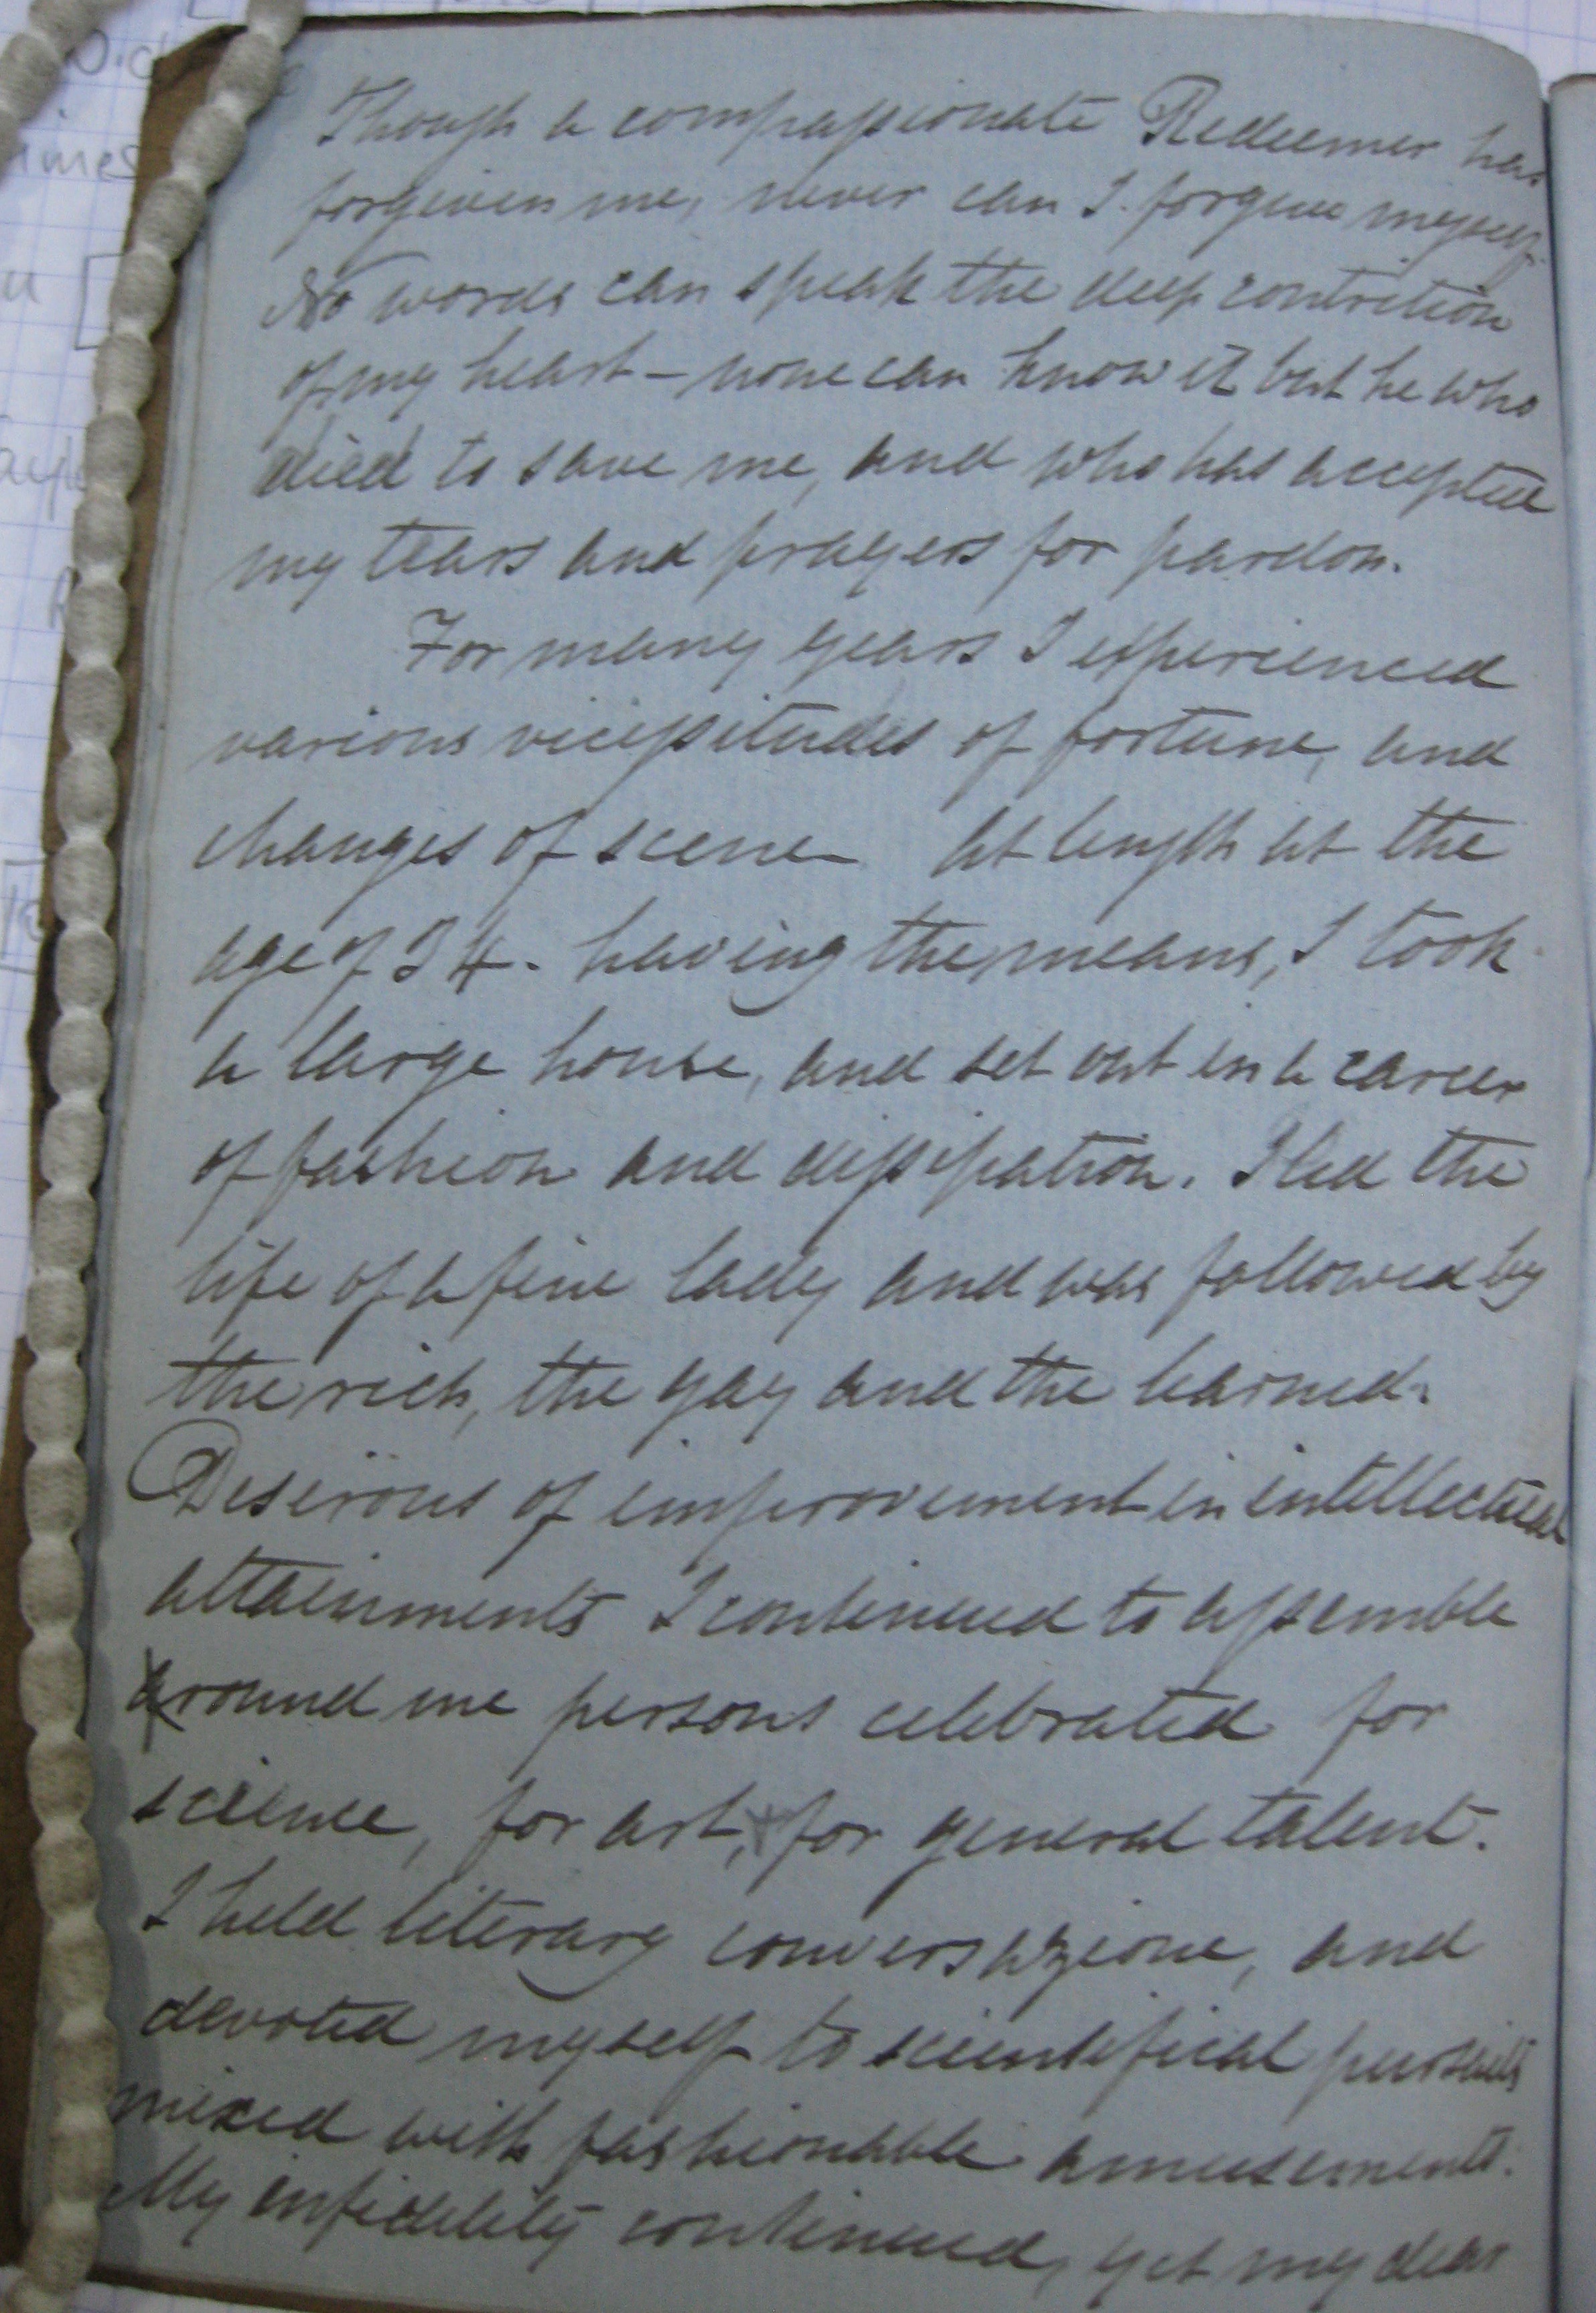 Though a compassionate Redeemer has
forgiven me, never can I forgive myself.
No words can speak the deep contrition
of my heart – none can know it but he who
died to save me, and who has accepted
my tears and prayers for pardon.
For many years I experienced
various vicissitudes of fortune, and
changes of scene – At length at the
age of 34. having the means, I took
a large house, and set out in a career
of fashion and dissipation. I led the
life of a fine lady and was followed by
the rich, the gay and the learned.
Desirous of improvement in intellectual
attainments I continued to assemble
around me persons celebrated for
science, for art, for general talent.
I held literary conversazione, and
devoted myself to scientifical pursuits
mixed with fashionable amusements.
My infidelity continued, yet my dear